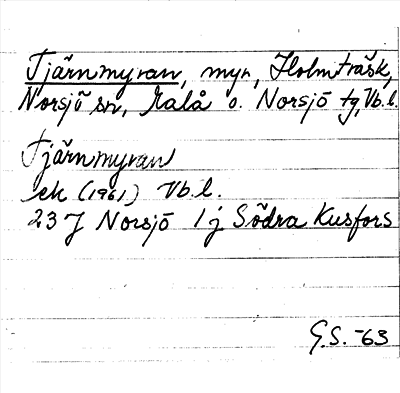 Tjärnmyran, myr, Holmträsk,
Norsjö sn, Malå o. Norsjö tg, Vb.l.
Tjärnmyran
ek (1961) Vb.l.
23 J Norsjö 1 j Södra Kusfors
G.S. -63